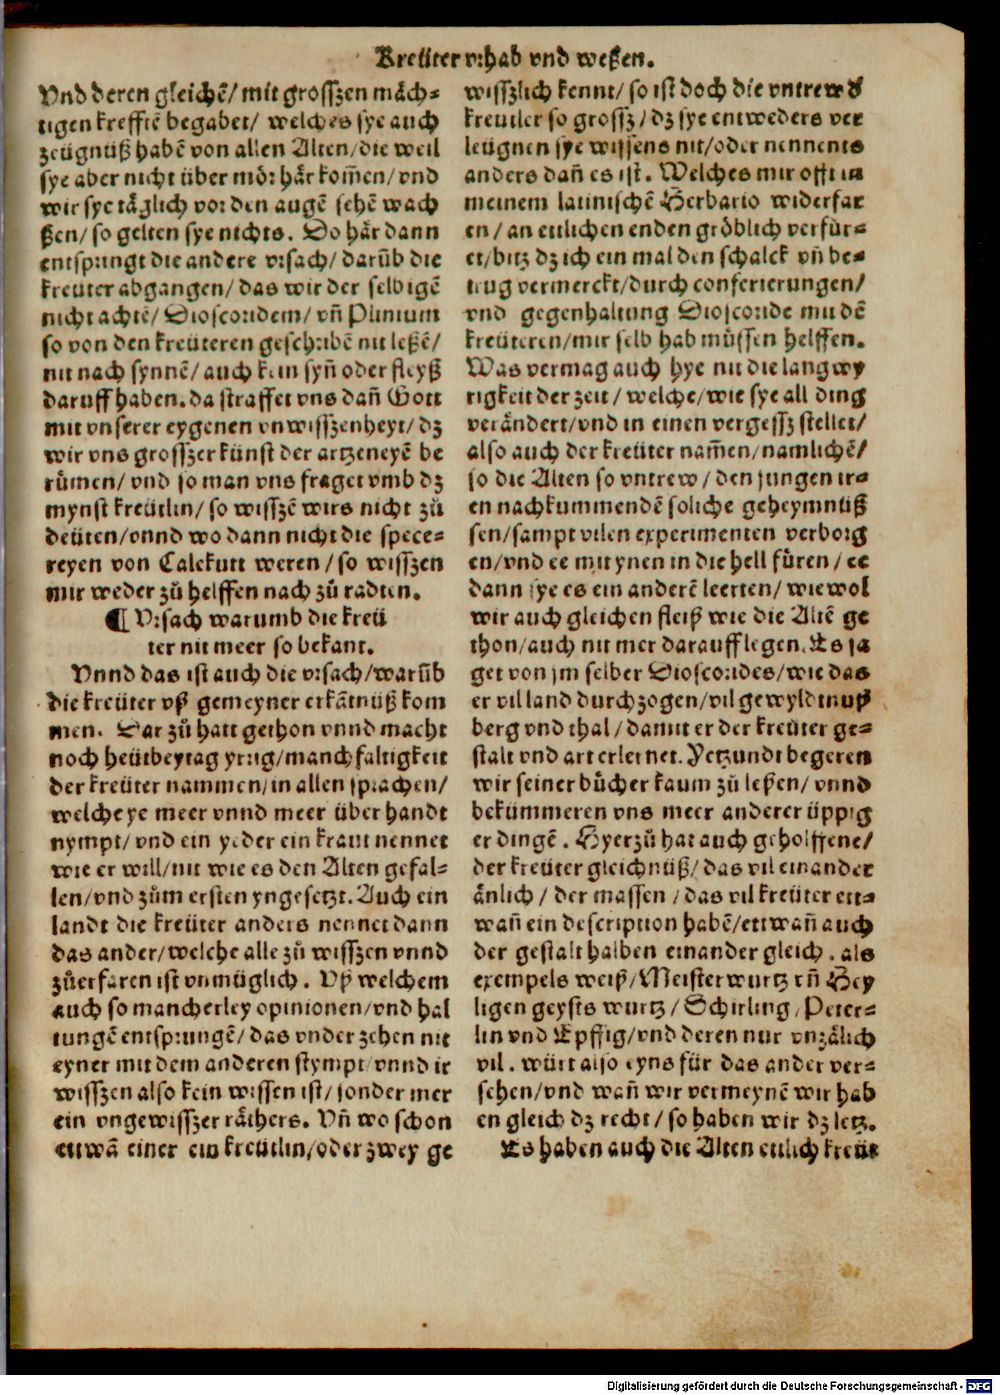 Kreüter vrhab vnd weßen.
Vnd deren gleichẽ/ mit grosszen mäch-
tigen krefftẽ begabet/ welches sye auch
zeügnüß habẽ von allen Alten/die weil
sye aber nicht über mör här kom̃en/vnd
wir sye täglich vor den augẽ sehẽ wach
ßen/so gelten sye nichts. Do här dann
entspringt die andere vrsach/ darũb die
kreüter abgangen/ das wir der selbigẽ
nicht achtẽ/ Dioscoridem/ vñ Plinium
so von den kreüteren geschribẽ nit leßẽ/
nit nach synnẽ/ auch kein syñ oder fleyß
daruff haben. da straffet vns dañ Gott
mit vnserer eygenen vnwisszenheyt/ dz
wir vns grosszer künst der artzeneyẽ be
rümen/ vnd so man vns fraget vmb dz
mynst kreütlin/ so wisszẽ wirs nicht zů
deüten/vnnd wo dann nicht die spece-
reyen von Calekutt weren/so wisszen
wir weder zů helffen nach zů radten.
¶ Vrsach warumb die kreü
ter nit meer so bekant.
Vnnd das ist auch die vrsach/warũb
die kreüter vß gemeyner erkãtnüß kom
men. Dar zů hatt gethon vnnd macht
noch heütbeytag yrrig/manchfaltigkeit
der kreüter nammen/in allen sprachen/
welche ye meer vnnd meer über handt
nympt/vnd ein yeder ein kraut nennet
wie er will/nit wie es den Alten gefal-
len/vnd zům ersten yngesetzt. Auch ein
landt die kreüter anders nennet dann
das ander/welche alle zů wisszen vnnd
zůerfaren ist vnmüglich. Vß welchem
auch so mancherley opinionen/vnd hal
tungẽ entspringẽ/das vnder zehen nit
eyner mit dem anderen stympt vnnd ir
wisszen also kein wissen ist/sonder mer
ein vngewisszer räthers. Vñ wo schon
ettwã einer ein kreütlin/oder zwey ge
wisszlich kennt/so ist doch die vntrew d'
kreutler so grossz/dz sye entweders ver
leügnen sye wissens nit/oder nennents
anders dañ es ist. Welches mir offt in
meinem latinischẽ Herbario widerfar
en/an ettlichen enden gröblich verfür-
et/bitz dz ich ein mal den schalck vñ be-
trug vermerckt/durch conferierungen/
vnd gegenhaltung Dioscoride mit dẽ
kreüteren/mir selb hab müssen helffen.
Was vermag auch hye nit die langwy
rigkeit der zeit/welche/wie sye all ding
verändert/vnd in einen vergessz stellet/
also auch der kreüter nam̃en/namlichẽ/
so die Alten so vntrew/den jungen ir-
en nachkummendẽ soliche geheymnüß
sen/sampt vilen experimenten verborg
en/vnd ee mit ynen in die hell füren/ee
dann sye es ein anderẽ leerten/wie wol
wir auch gleichen fleiß wie die Altẽ ge
thon/auch nit mer darauff legen. Es sa
get von jm selber Dioscorides/wie das
er vil land durchzogen/vil gewyldtnuß
berg vnd thal/damit er der kreüter ge-
stalt vnd art erlernet. Yetzundt begeren
wir seiner bücher kaum zů leßen/vnnd
bekümmeren vns meer anderer üppig
er dingẽ. Hyerzů hat auch geholffene/
der kreüter gleichnüß/das vil einander
änlich/der massen/das vil kreüter ett-
wañ ein description habẽ/ettwañ auch
der gestalt halben einander gleich. als
exempels weiß/Meisterwurtz vñ Hey
ligen geysts wurtz/Schirling/Peter-
lin vnd Epffig/vnd deren nur vnzälich
vil. würt also eyns für das ander ver-
sehen/vnd wañ wir vermeynẽ wir hab
en gleich dz recht/so haben wir dz letz.
Es haben auch die Alten ettlich kreüt
Digitalisierung gefördert durch die Deutsche Forschungsgemeinschaft - DFG